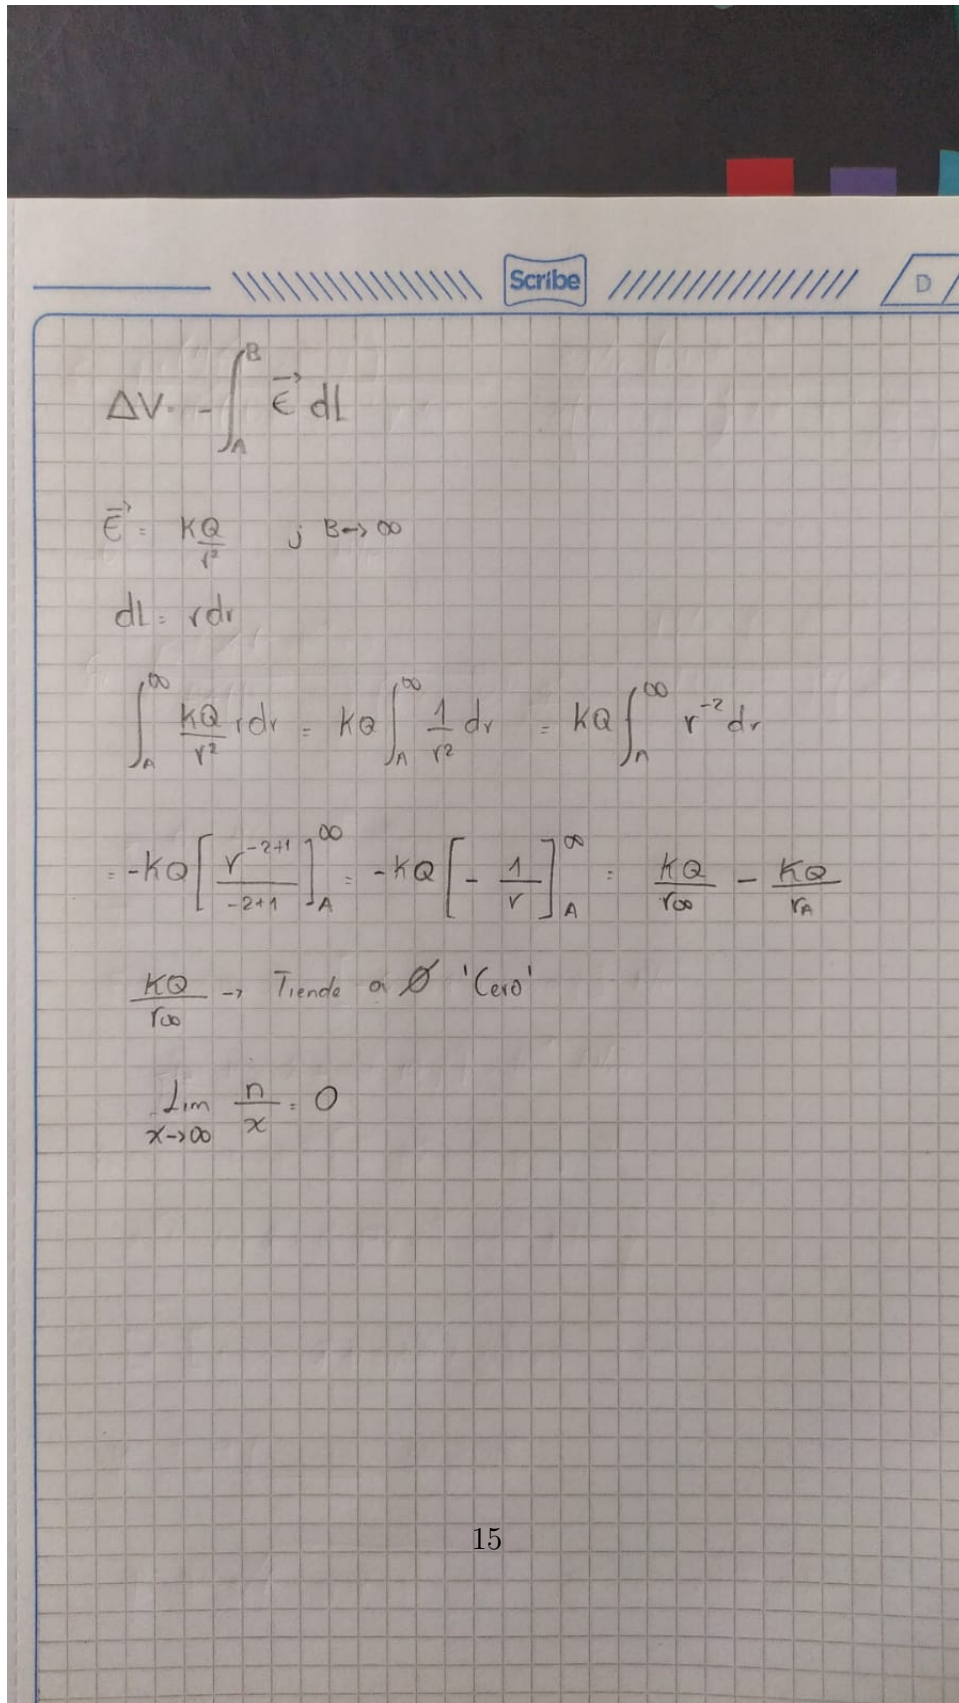 Scribe
D
ΔV = -∫_A^B ε⃗ dl
ε⃗ = KQ/r² ; B→∞
dl = rdr
∫_A^∞ KQ/r² rdr = KQ ∫_A^∞ 1/r² dr = KQ ∫_A^∞ r⁻² dr
= -KQ [r^(-2+1)/(-2+1)]_A^∞ = -KQ [-1/r]_A^∞ = KQ/r∞ - KQ/r_A
KQ/r∞ → Tiende a Ø 'Cero'
Lim x→∞ n/x = 0
15